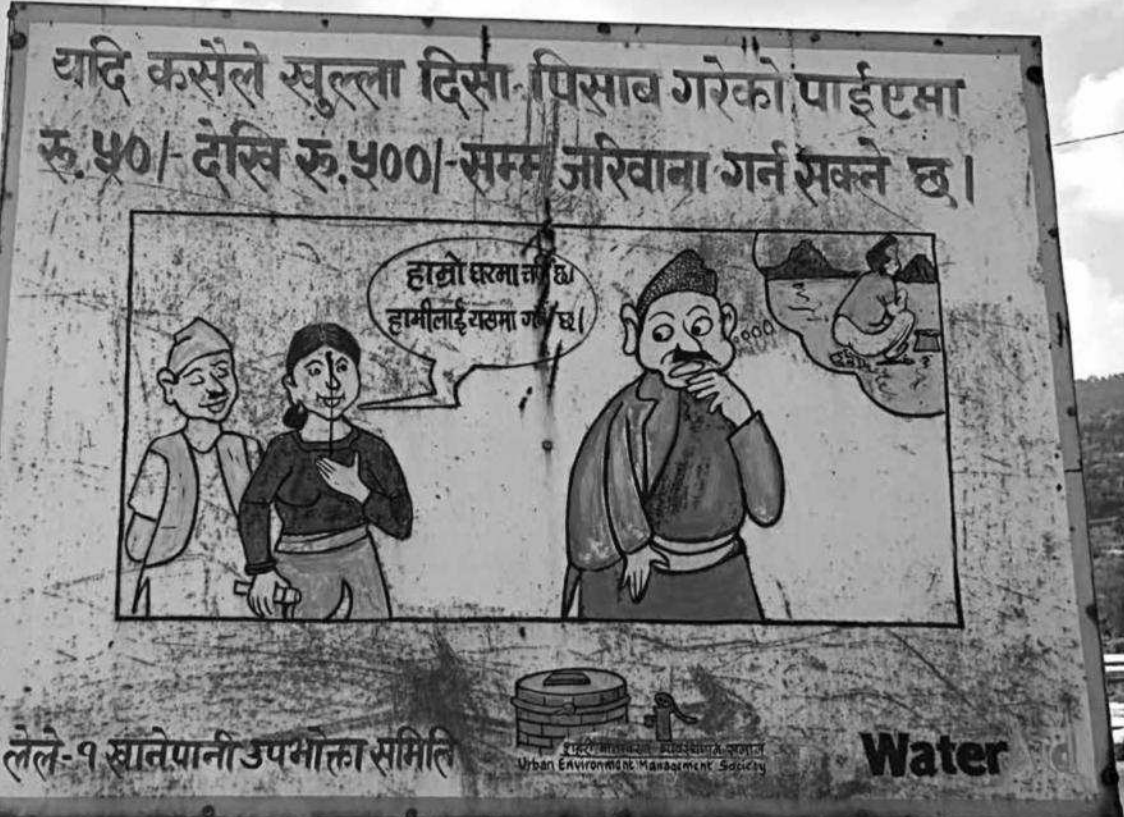 यदि कसैले खुल्ला दिसा पिसाब गरेको पाईएमा
रू.५०/- देखि रू.५००/- सम्म जरिवाना गर्न सक्ने छ।
हाम्रो घरमा छ।
हामीलाई यसमा गर्व छ।
लेले-१ खानेपानी उपभोक्ता समिति
शहरी वातावरण व्यवस्थापन समाज
Urban Environment Management Society
Water